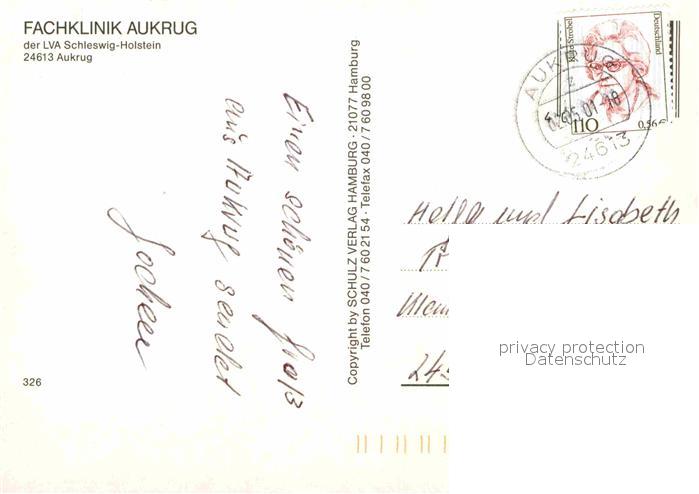 FACHKLINIK AUKRUG
der LVA Schleswig-Holstein
24613 Aukrug
Einen schönen Gruß
aus Aukrug sendet
Jochen
326
Copyright by SCHULZ VERLAG HAMBURG · 21077 Hamburg
Telefon 040 / 7 60 21 54 · Telefax 040 / 7 60 98 00
Käte Strobel
Deutschland
110
0,56 €
AUKRUG
z
02.05.01 18
24613
Hella und Lisabeth
24
privacy protection
Datenschutz